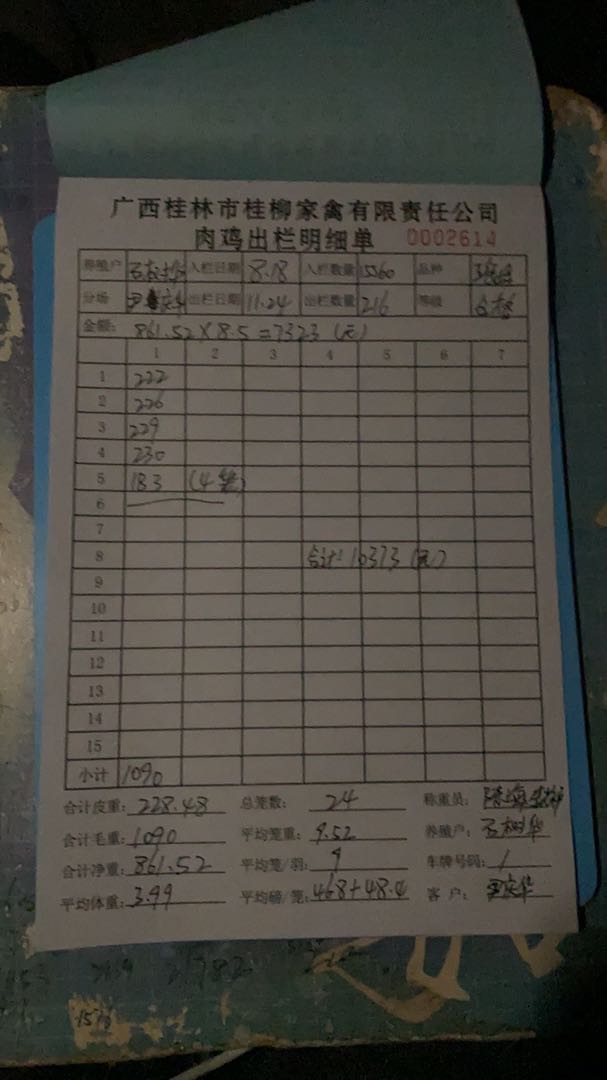 广西桂林市桂柳家禽有限责任公司
肉鸡出栏明细单 0002614
养殖户 石树华 入栏日期 8.18 入栏数量 15560 品种
分场 出栏日期 11.24 出栏数量 216 等级 合格
金额: 861.52×8.5=7323(元)
1 2 3 4 5 6 7
1 222
2 226
3 229
4 230
5 183 (4笼)
6
7
8 合计: 10373(元)
9
10
11
12
13
14
15
小计 1090
合计皮重: 228.48 总笼数: 24 称重员:
合计毛重: 1090 平均笼重: 9.52 养殖户: 石树华
合计净重: 861.52 平均笼/羽: 9 车牌号码: /
平均体重: 3.99 平均磅/笼: 468+48.4 客户: